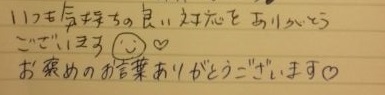 いつも気持ちの良い対応をありがとう
ございます☺♡
お褒めのお言葉ありがとうございます♡